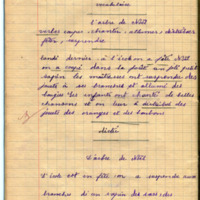 vocabulaire
L'arbre de Noël
verbes couper, chanter, allumer, distribuer
fêter, suspendre
Lundi dernier, à l'école on a fêté Noël
on a coupé dans la forêt un joli petit
sapin les maîtresses ont suspendu des
jouets à ses branches et allumé des
bougies les enfants ont chanté de belles
chansons et on leur a distribué des
jouets des oranges et des bonbons
dictée
L'arbre de Noël
L'école est en fête on a suspendu aux
branches d'un sapin des